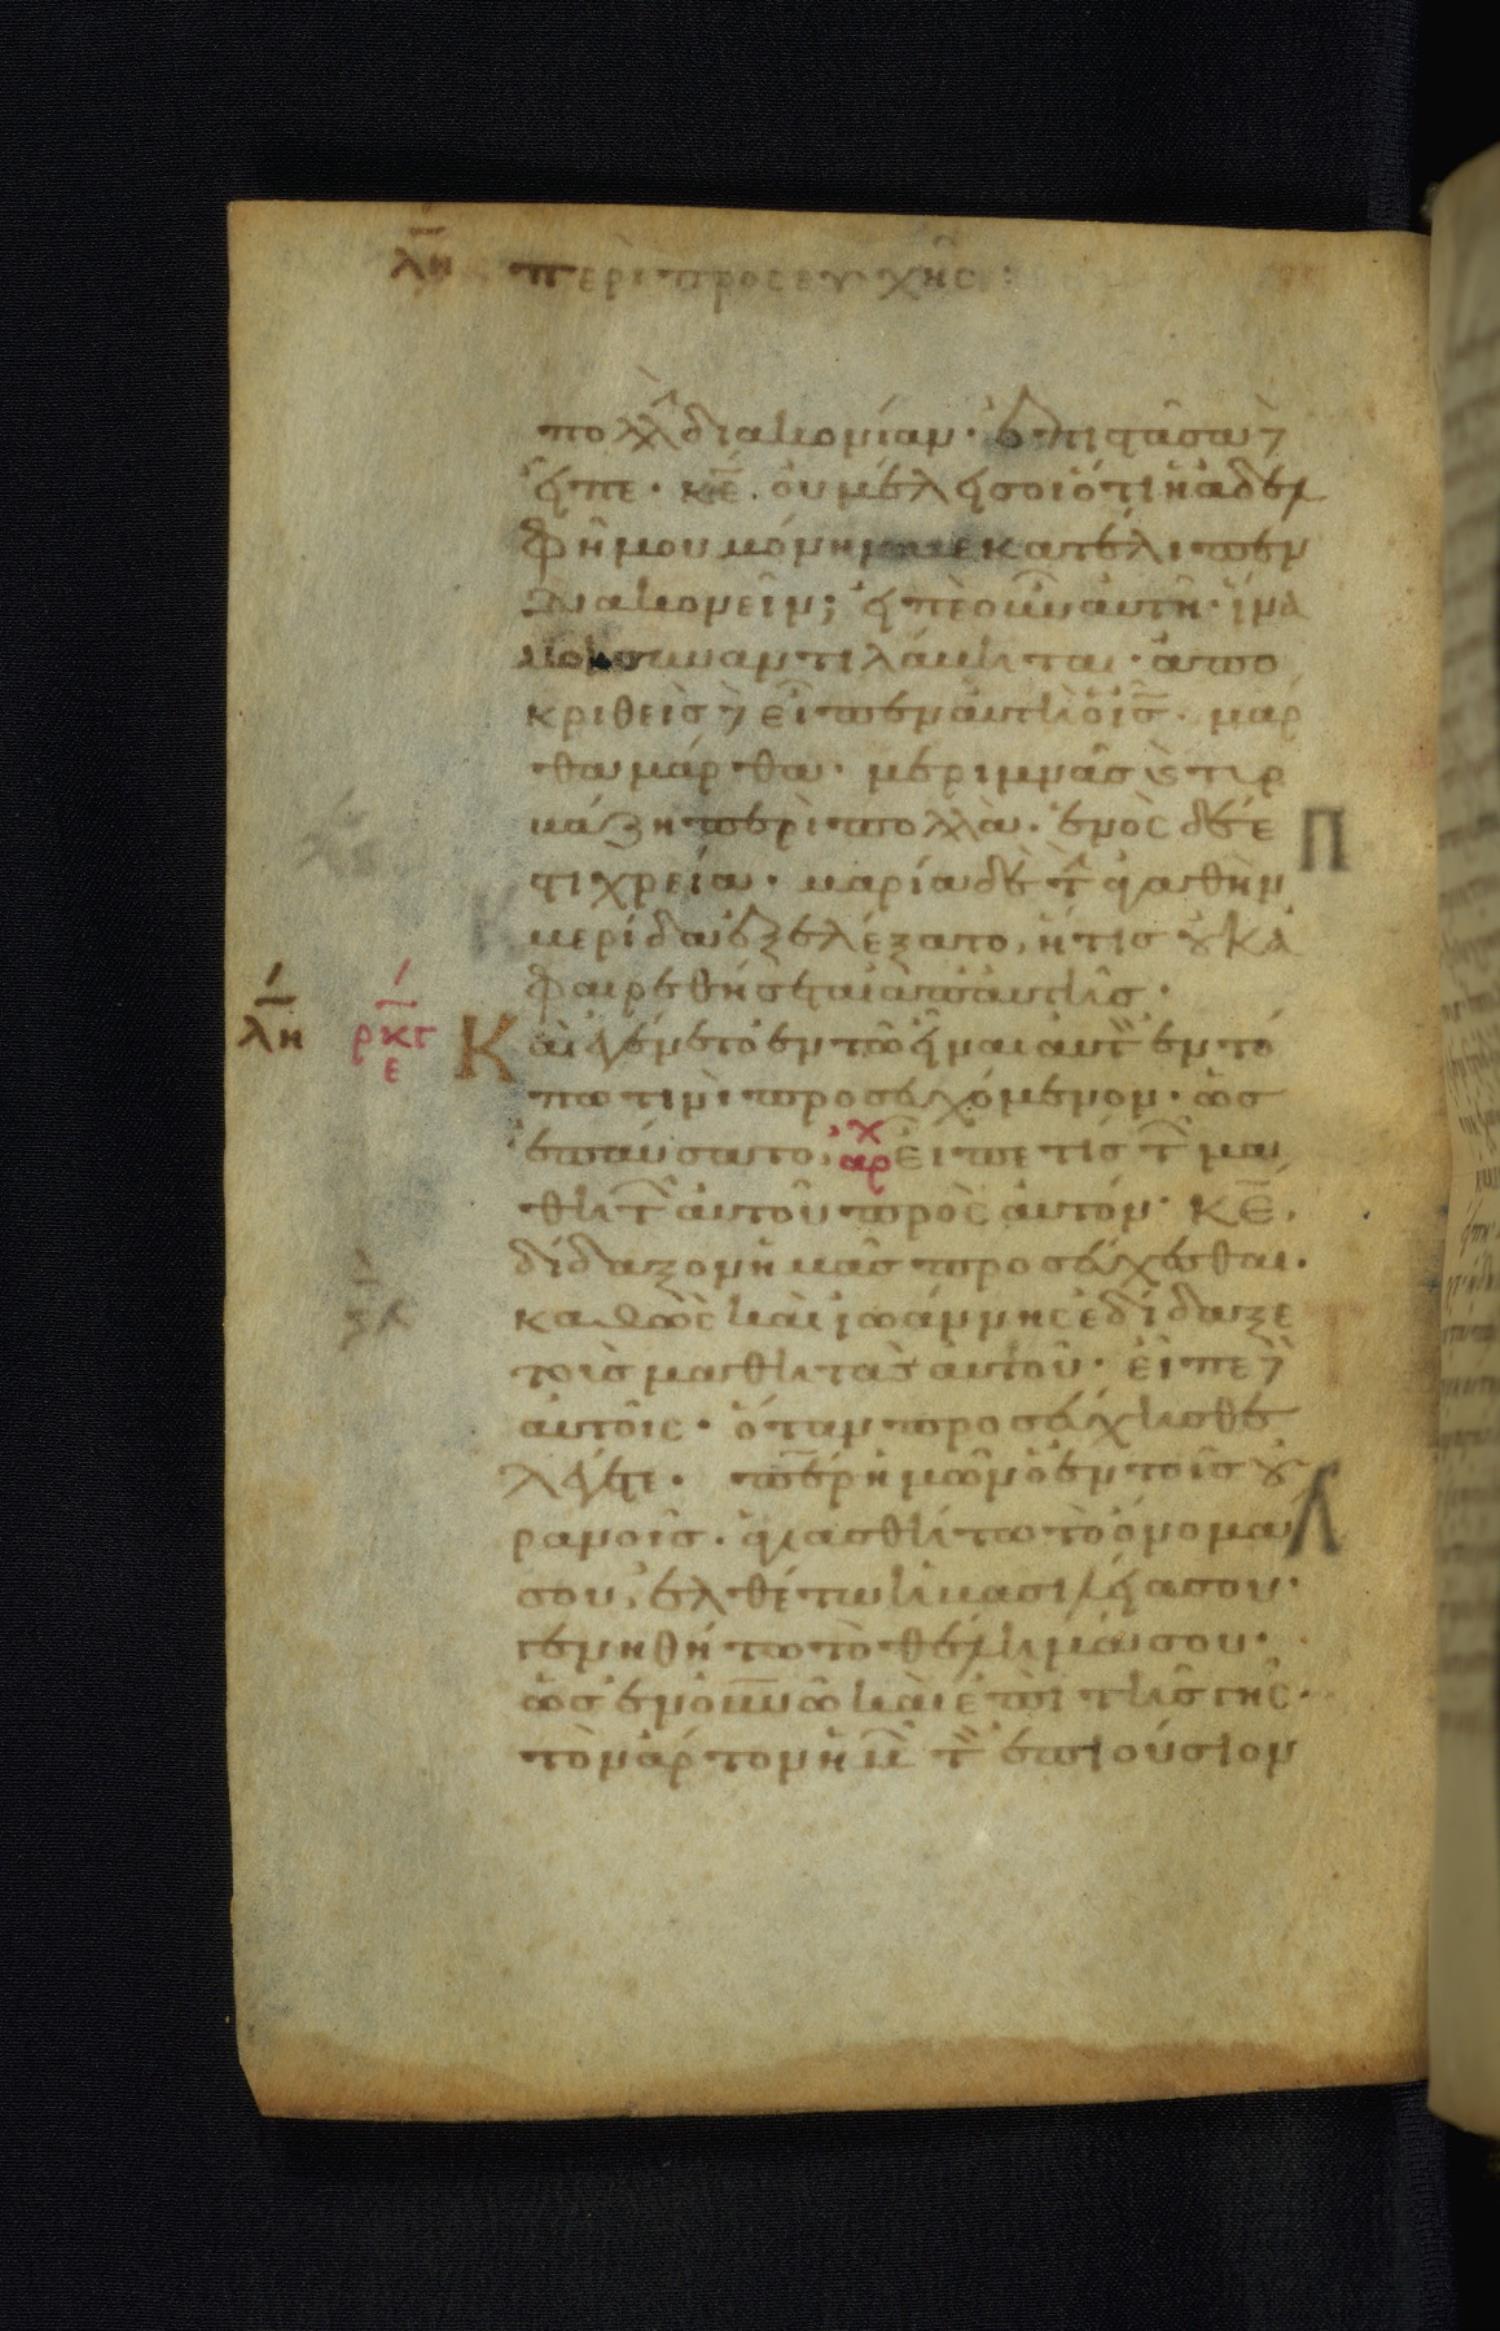 λη περὶ προσευχῆς:
πολλὴ διακονίαν· ἐπιστᾶσα δὲ
εἶπε· κε̅. οὐ μέλει σοι ὅτι ἡ ἀδελ
φή μου μόνην με κατέλιπεν
διακονεῖν; εἰπὲ οὖν αὐτῆ· ἵνα
μοι συναντιλάβηται· ἀπο
κριθεὶς δὲ εἶπεν αὐτῆ ὁ ι̅ς̅. μάρ
θα μάρθα· μεριμνᾶς καὶ τυρ
βάζη περὶ πολλὰ· ἑνὸς δέ ἐ
στι χρεία· μαρία δὲ τ̅ ἀγαθὴν
μερίδα ἐξελέξατο, ἥτις οὐκ ἀ
φαιρεθήσεται ἀπ' αὐτῆς·
λη ρκγ ε Καὶ ἐγένετο ἐν τῶ εἶναι αὐτ̅ ἐν τό
πω τινὶ προσευχόμενον· ὡς
ἐπαύσατο, αρχ εἶπέ τις τ̅ μα
θητ̅ αὐτοῦ πρὸς αὐτόν· κ̅ε̅.
δίδαξον ἡμᾶς προσεύχεσθαι.
καθὼς καὶ ἰωάννης ἐδίδαξε
τοὺς μαθητὰς αὐτοῦ· εἶπε δὲ
αὐτοῖς· ὅταν προσεύχησθε
λέγετε· π̅ε̅ρ ἡμῶν ὁ ἐν τοῖς οὐ
ρανοῖς. ἁγιασθήτω τὸ ὄνομα
σου, ἐλθέτω ἡ βασιλεία σου·
γενηθήτω τὸ θέλημά σου·
ὡς ἐν ο̅υ̅ν̅ω καὶ ἐπὶ τῆς γῆς·
τὸν ἄρτον ἡμ̅ τ̅ ἐπιούσιον